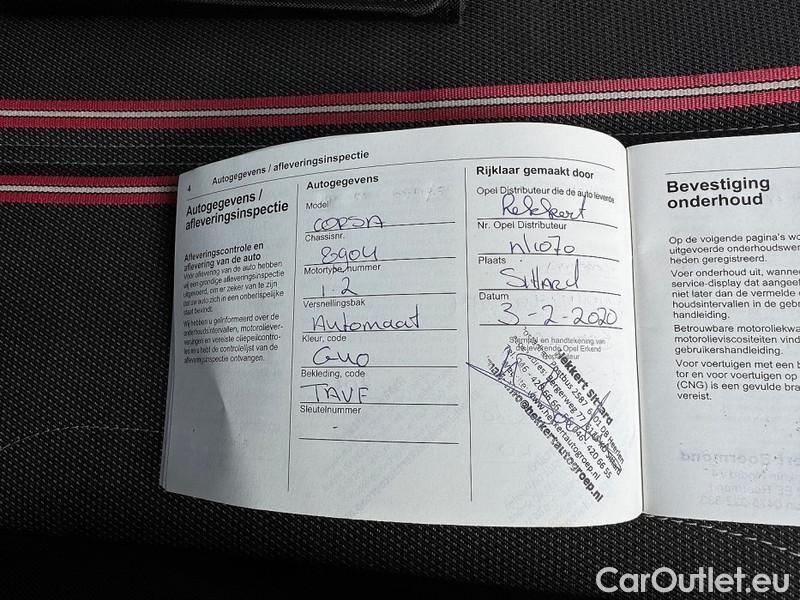 4 Autogegevens / afleveringsinspectie
Autogegevens /
afleveringsinspectie
Afleveringscontrole en
aflevering van de auto
Vóór aflevering van de auto hebben
wij een grondige afleveringsinspectie
uitgevoerd, om er zeker van te zijn
dat uw auto zich in een onberispelijke
staat bevindt.
Wij hebben u geïnformeerd over de
onderhoudsintervallen, motoroliever-
versingen en vereiste oliepeilcontro-
les en u hebt de controlelijst van de
afleveringsinspectie ontvangen.
Autogegevens
Model
CORSA
Chassisnr.
8904
Motortype, nummer
1.2
Versnellingsbak
Automaat
Kleur, code
Guo
Bekleding, code
TAVF
Sleutelnummer
-
Rijklaar gemaakt door
Opel Distributeur die de auto leverde
Hekkert
Nr. Opel Distributeur
N1070
Plaats
Sittard
Datum
3-2-2020
Stempel en handtekening van
de leverende Opel Erkend
Hekkert Sittard
Postbus 2587 6401 DB Heerlen
Bergerweg 77
www.hekkertautogroep.nl
info@hekkertautogroep.nl
Bevestiging
onderhoud
Op de volgende pagina's wo
uitgevoerde onderhoudswer
heden geregistreerd.
Voer onderhoud uit, wannee
service-display dat aangeef
niet later dan de vermelde o
houdsintervallen in de gebr
handleiding.
Betrouwbare motoroliekwa
motorolieviscositeiten vind
gebruikershandleiding.
Voor voertuigen met een b
tor en voor voertuigen op
(CNG) is een gevulde bra
vereist.
CarOutlet.eu